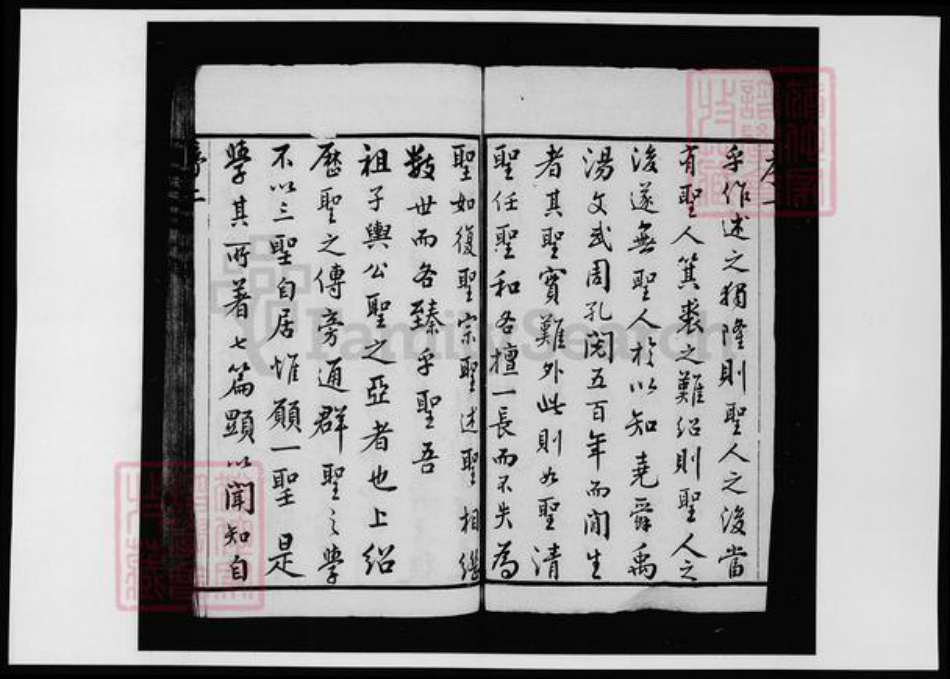 序一
乎作述之獨隆則聖人之後當
有聖人箕裘之難紹則聖人之
後遂無聖人於以知堯舜禹
湯文武周孔閱五百年而間生
者其聖實難外此則如聖清
聖任聖和各擅一長而不失為
聖如復聖宗聖述聖相繼
數世而各臻乎聖吾
祖子輿公聖之亞者也上紹
歷聖之傳旁通群聖之學
不以三聖自居惟願一聖是
學其所著七篇顯以聞知自
序二
FamilySearch